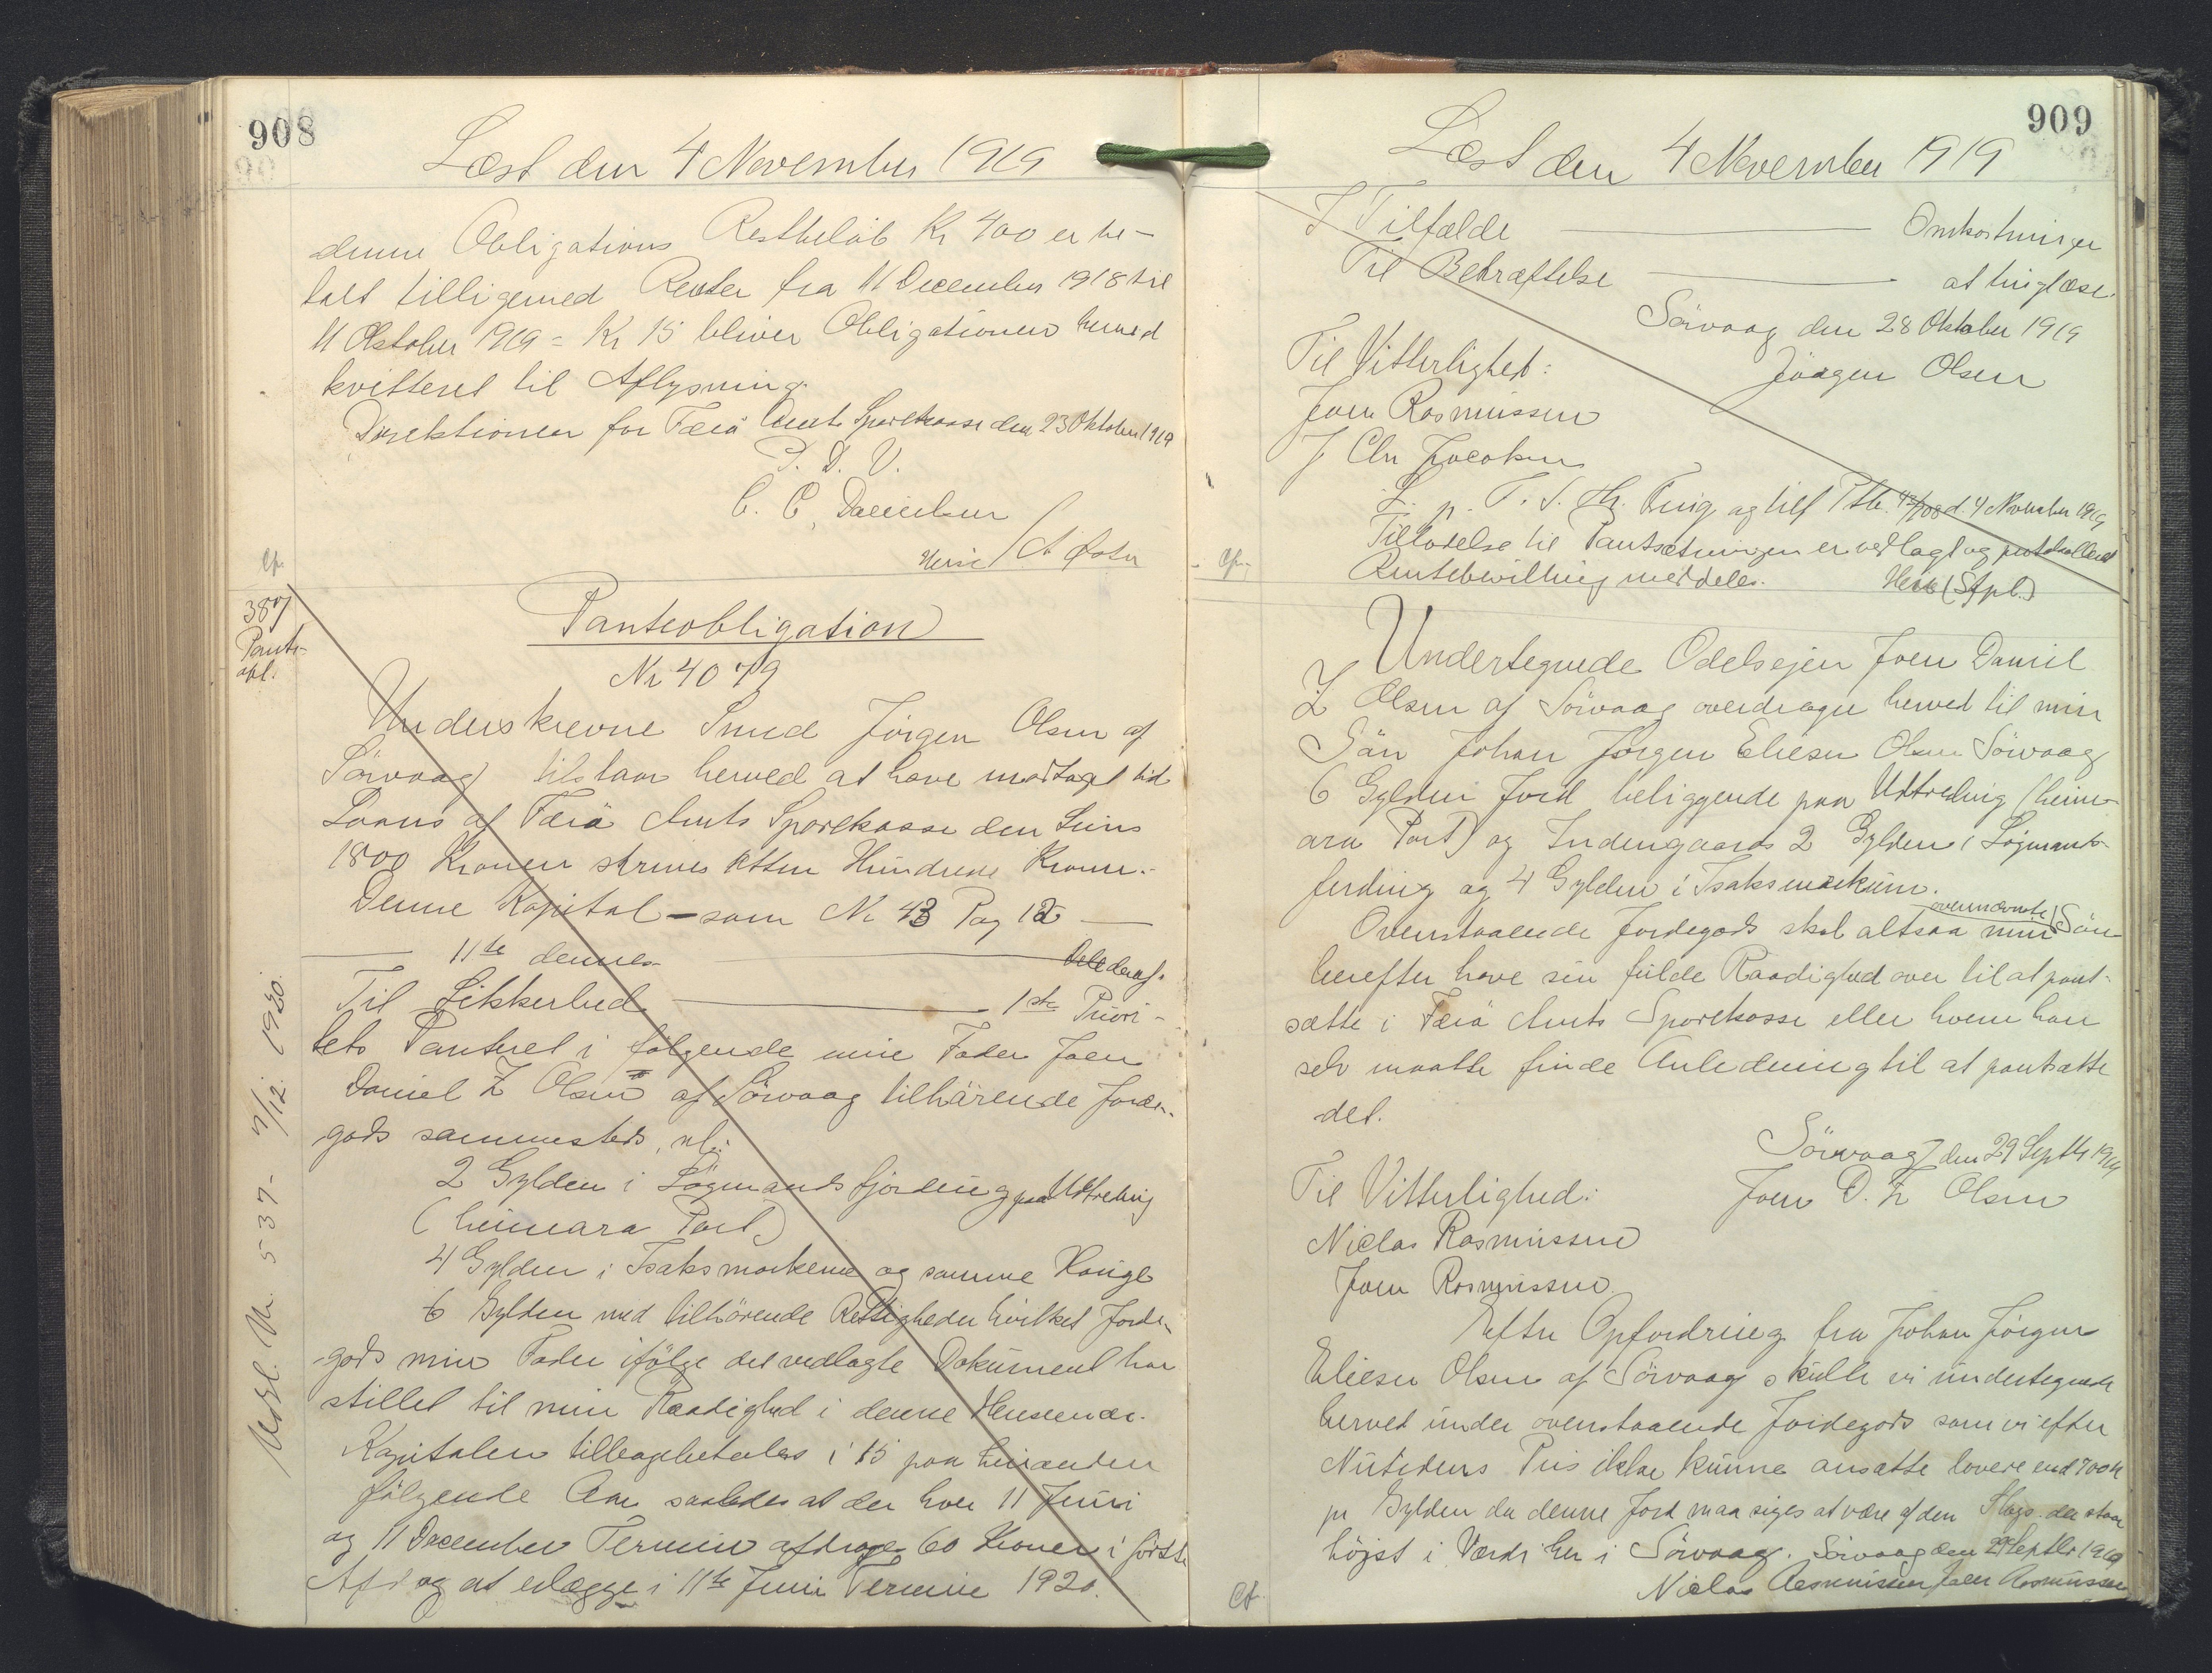 908
Læst den 4 November 1919
denne Obligations Restbeløb Kr 400 er be-
talt tilligemed Renter fra 11 December 1918 til
11 Oktober 1919 = Kr 15 bliver Obligationen hermed
kvitteret til Aflysning.
Direktionen for Færö Amts Sparekasse den 23 Oktober 1919
P. D. V.
C. C. Danielsen
/ A Öster
Cfr.
387
Pante-
obl.
Panteobligation
Nr 4079
Underskrevne Smed Jörgen Olsen af
Sörvaag tilstaar herved at have modtaget til
Laans af Færö Amts Sparekasse den Sum
1800 Kroner skrives Atten Hundrede Kroner.
Denne Kapital – som Nr 43 Pag 12 —
— 11te dennes — Dele deraf.
Til Sikkerhed — 1ste Priori-
tets Panteret i følgende min Fader Joen
Daniel Z Olsen af Sörvaag tilhörende Jorde-
gods sammesteds, nl:
2 Gylden i Lögmandsfjerding paa Udtreding
(heimara Part)
4 Gylden i Isaksmarkene og samme Hauge
6 Gylden med tilhörende Rettigheder hvilket Jorde-
gods min Fader ifölge det vedlagte Dokument har
stillet til min Raadighed i denne Henseende.
Kapitalen tilbagebetales i 15 paa hinanden
fölgende Aar saaledes at der hver 11 Juni
og 11 December Termin afdrages 60 Kroner i förste
Afd og at erlægge i 11te Juni Termin 1920.
Udsl. Nr. 537- 7/12 1930.
909
Læst den 4 November 1919
I Tilfælde — Omkostninger
Til Bekræftelse — at tinglæse.
Sörvaag den 28 Oktober 1919
Til Vitterlighed: Jörgen Olsen
Joen Rasmussen
J Chr Jacobsen
L. p. T. S. Ting og tilf Ptb. d. 4 November 1919
Tilladelse til Pantsætningen er vedlagt og protokolleret
Rentebevilling meddeles. (Stpl.)
Cfr.
Undertegnede Odelsejer Joen Daniel
Z Olsen af Sörvaag overdrager herved til min
Sön Johan Jörgen Elieser Olsen Sörvaag
6 Gylden Jord beliggende paa Udtreding (heim-
ara Part) og Indengaards 2 Gylden i Lögmands-
ferding og 4 Gylden i Isaksmarkum.
ovennævnte
Ovenstaaende Jordegods skal altsaa min Sön
herefter have sin fulde Raadighed over til at pant-
sætte i Færö Amts Sparekasse eller hvem han
selv maatte finde Anledning til at pantsætte
det.
Sörvaag den 29 Septbr 1919
Til Vitterlighed: Joen D. Z Olsen
Niclas Rasmussen
Joen Rasmussen
Efter Opfordring fra Johan Jörgen
Elieser Olsen af Sörvaag skulle vi undertegnede
herved under ovenstaaende Jordegods som vi efter
Nutidens Pris ikke kunne ansætte lavere end 700 Kr
pr Gylden da denne Jord maa siges at være af den Slags der staar
höjst i Værdi her i Sörvaag. Sörvaag den 29 Septbr 1919
Niclas Rasmussen Joen Rasmussen
Cf.